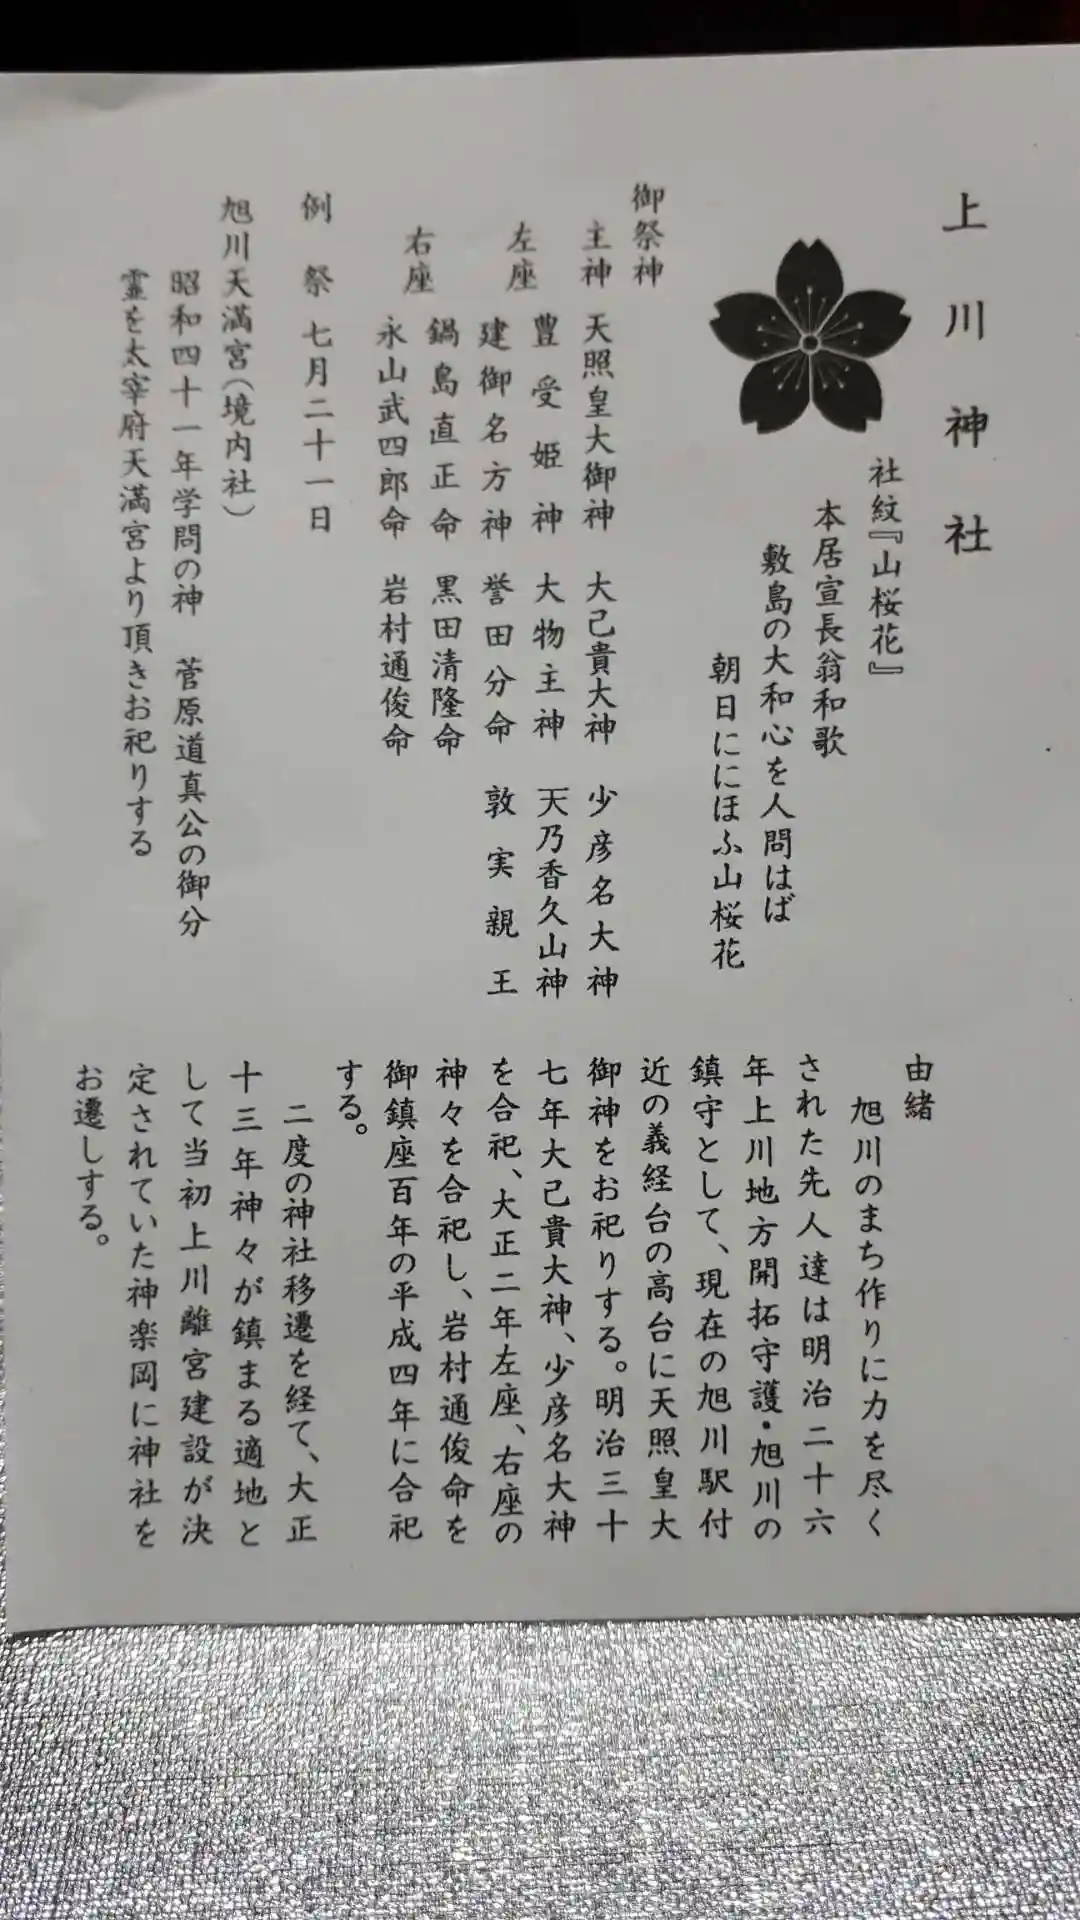 上川神社
社紋『山桜花』
本居宣長翁和歌
敷島の大和心を人問はば
朝日ににほふ山桜花
御祭神
主神 天照皇大御神 大己貴大神 少彦名大神
左座 豊受姫神 大物主神 天乃香久山神
建御名方神 誉田分命 敦実親王
右座 鍋島直正命 黒田清隆命
永山武四郎命 岩村通俊命
例祭 七月二十一日
旭川天満宮(境内社)
昭和四十一年学問の神 菅原道真公の御分
霊を太宰府天満宮より頂きお祀りする
由緒
旭川のまち作りに力を尽く
された先人達は明治二十六
年上川地方開拓守護・旭川の
鎮守として、現在の旭川駅付
近の義経台の高台に天照皇大
御神をお祀りする。明治三十
七年大己貴大神、少彦名大神
を合祀、大正二年左座、右座の
神々を合祀し、岩村通俊命を
御鎮座百年の平成四年に合祀
する。
二度の神社移遷を経て、大正
十三年神々が鎮まる適地と
して当初上川離宮建設が決
定されていた神楽岡に神社を
お遷しする。